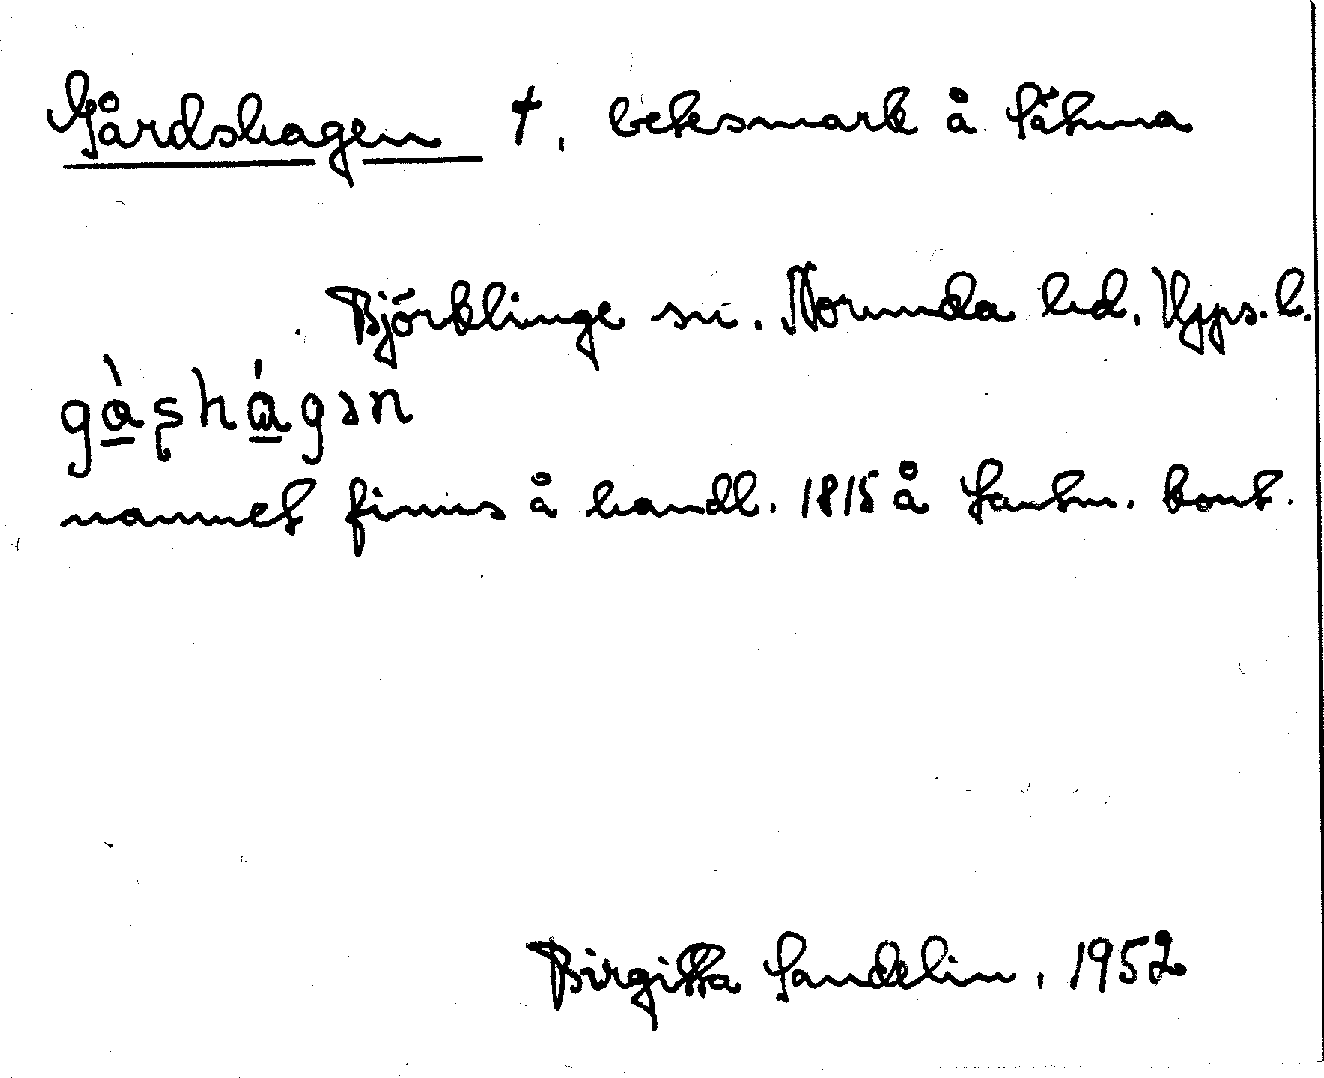 Gårdshagen †, betesmark å Sätuna
Björklinge sn. Norunda hd. Upps. l.
gå̀ʂhágən
namnet finns å handl. 1815 å Lantm. kont.
Birgitta Sandelin, 1952